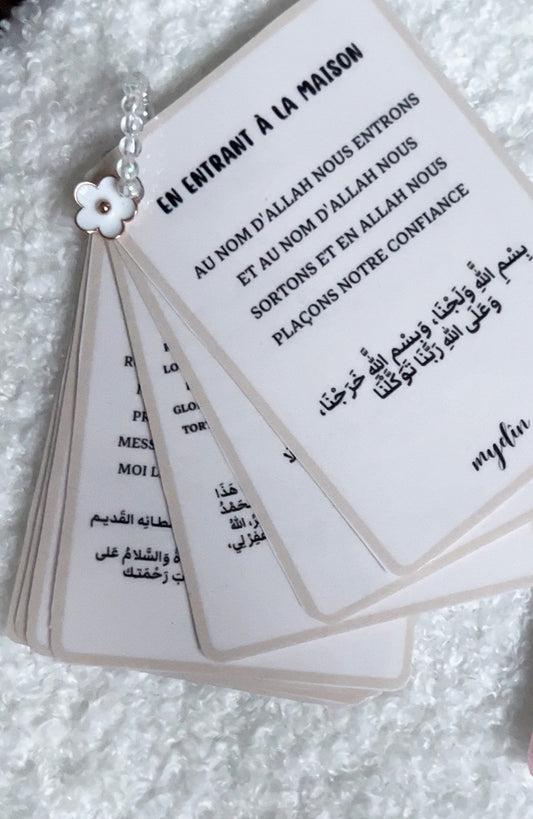 EN ENTRANT À LA MAISON
AU NOM D'ALLAH NOUS ENTRONS
ET AU NOM D'ALLAH NOUS
SORTONS ET EN ALLAH NOUS
PLAÇONS NOTRE CONFIANCE
بِسْمِ اللَّهِ وَلَجْنَا، وَبِسْمِ اللَّهِ خَرَجْنَا،
وَعَلَى اللهِ رَبِّنَا تَوَكَّلْنَا
mydin
LO
GLO
TOR
هَذَا
اللهُ
MESS
MOI L
القَديم
وَالسَّلامُ عَلى
رَحْمَتك